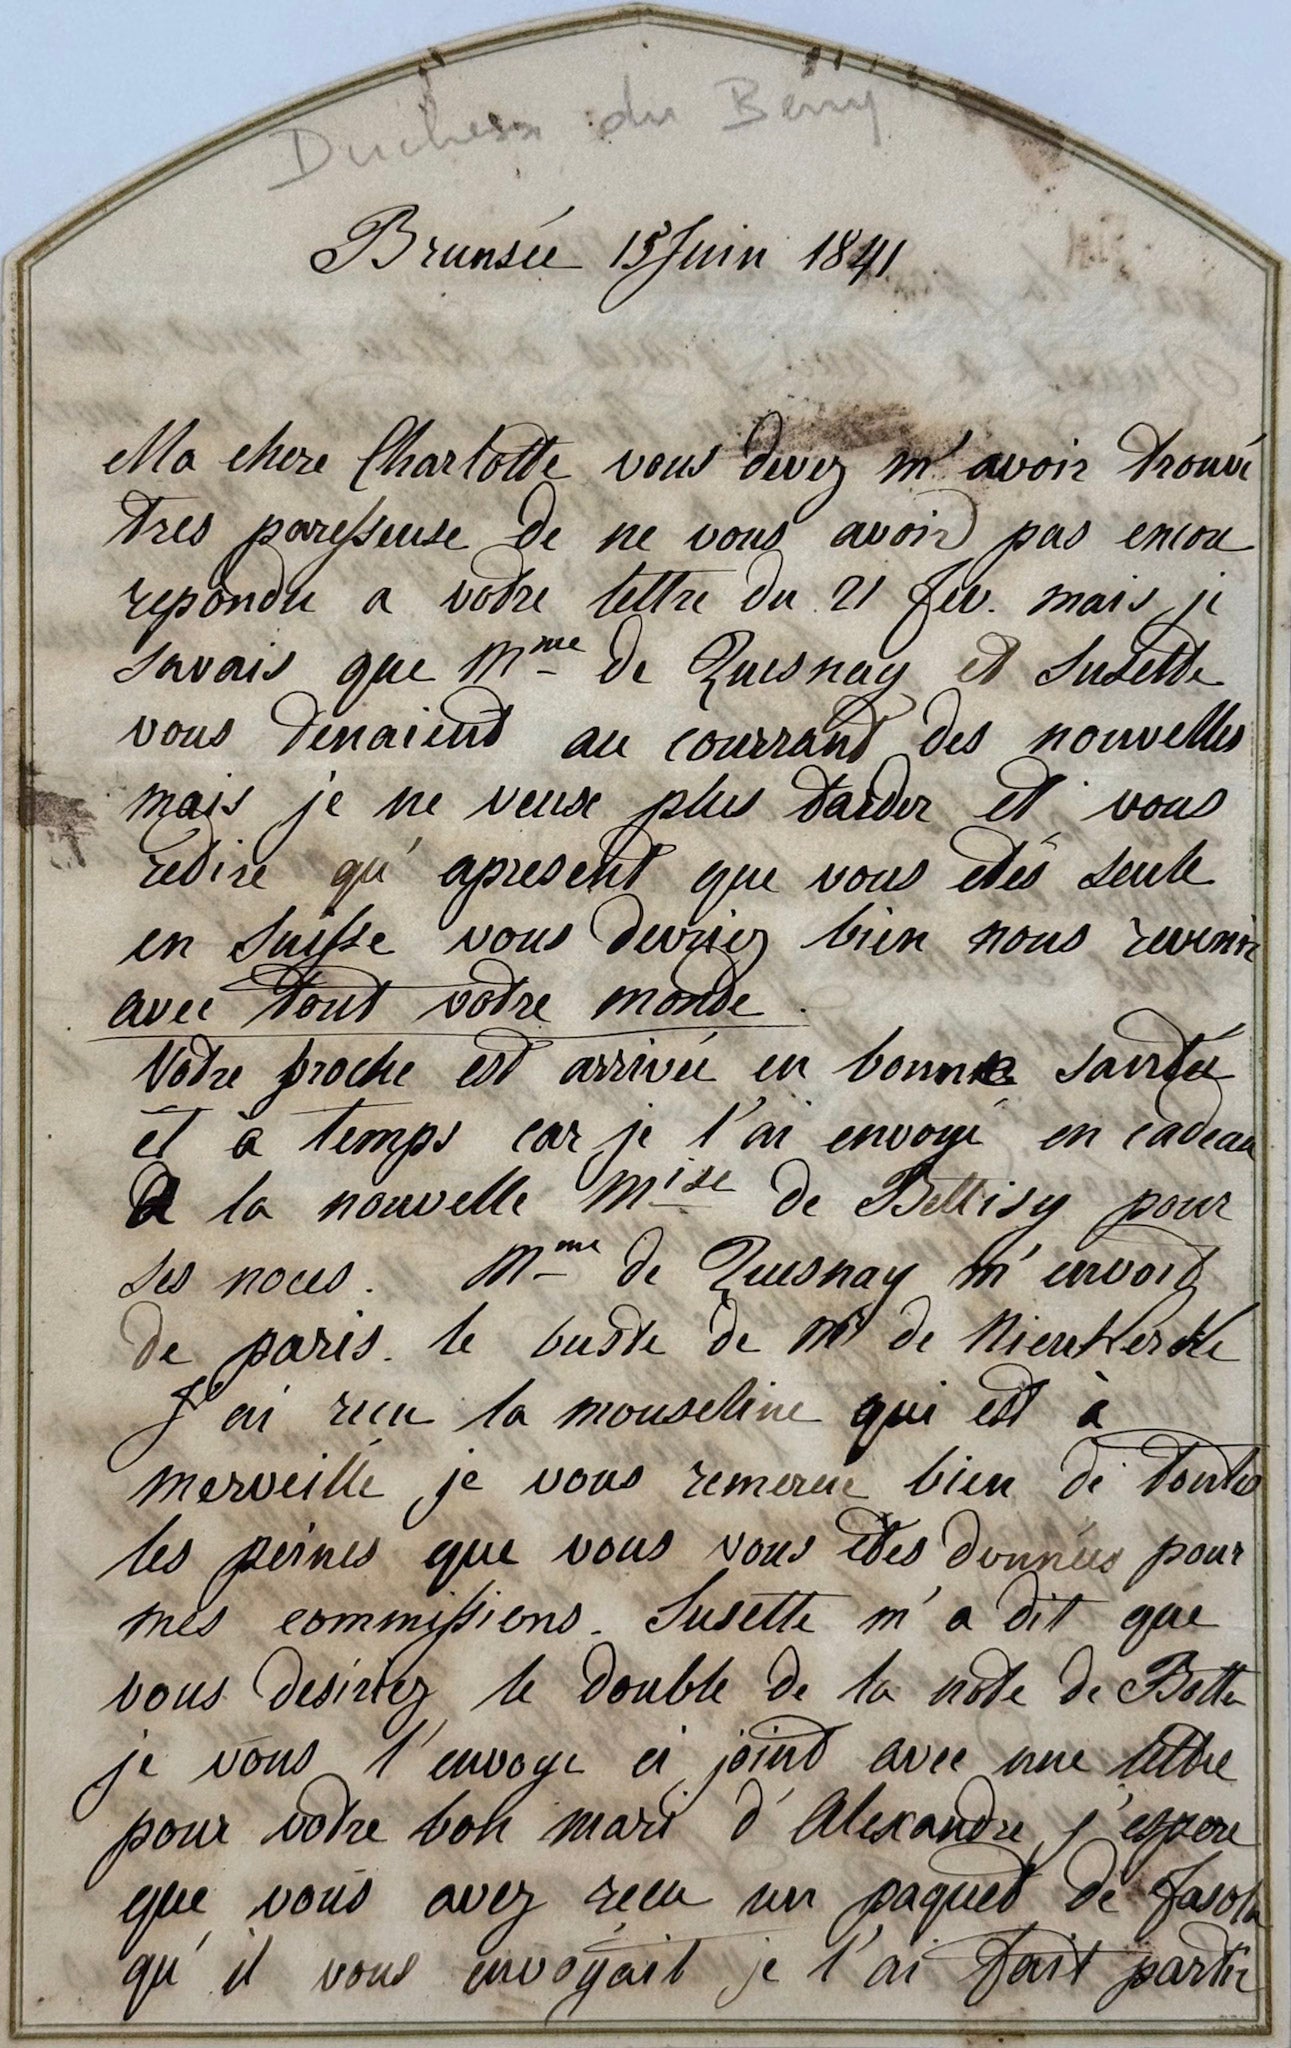 Duchess du Berry
Brunsée 15 Juin 1841
Ma chere Charlotte vous devez m'avoir trouvé
tres paresseuse de ne vous avoir pas encore
repondu a votre lettre du 21 Fev. mais je
savais que Mme de Quesnay et Susette
vous tenaient au courrant des nouvelles
mais je ne veux plus tarder et vous
redire qu'apresent que vous etés seule
en Suisse vous devriez bien nous revenir
avec tout votre monde.
Votre broche est arrivée en bonne santée
et à temps car je l'ai envoyé en cadeau
a la nouvelle Mise de Bettisy pour
ses noces. Mme de Quesnay m'envoit
de paris. le buste de Mr de Nieukerke
J'ai recu la mouseline qui est à
merveille je vous remercie bien de toutes
les peines que vous vous etes données pour
mes commissions. Susette m'a dit que
vous desiriez le double de la note de Botta
je vous l'envoye ci joint avec une lettre
pour votre bon mari d'Alexandre j'espere
que vous avez recu un paquet de
qu'il vous envoyait je l'ai fait partir